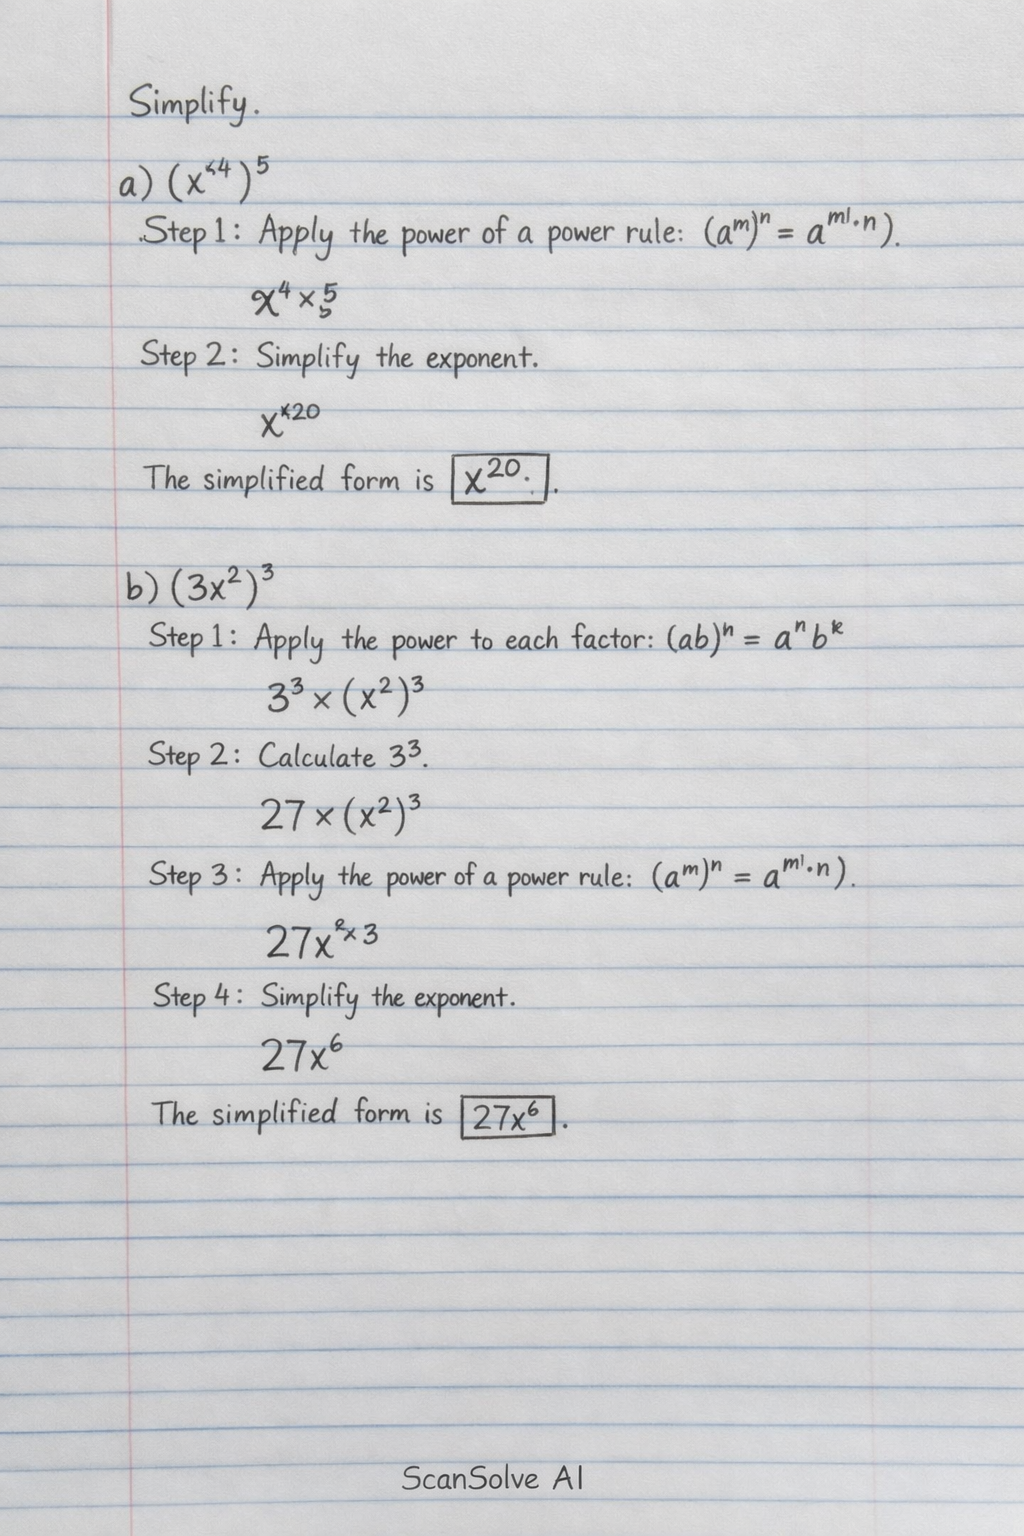 Simplify.
a) (x^{<4})^5
Step 1: Apply the power of a power rule: (a^m)^n = a^{m'·n}).
x^4 × 5
Step 2: Simplify the exponent.
x^{×20}
The simplified form is x^{20}. .
b) (3x^2)^3
Step 1: Apply the power to each factor: (ab)^n = a^n b^k
3^3 × (x^2)^3
Step 2: Calculate 3^3.
27 × (x^2)^3
Step 3: Apply the power of a power rule: (a^m)^n = a^{m'·n}).
27x^{2×3}
Step 4: Simplify the exponent.
27x^6
The simplified form is 27x^6.
ScanSolve AI